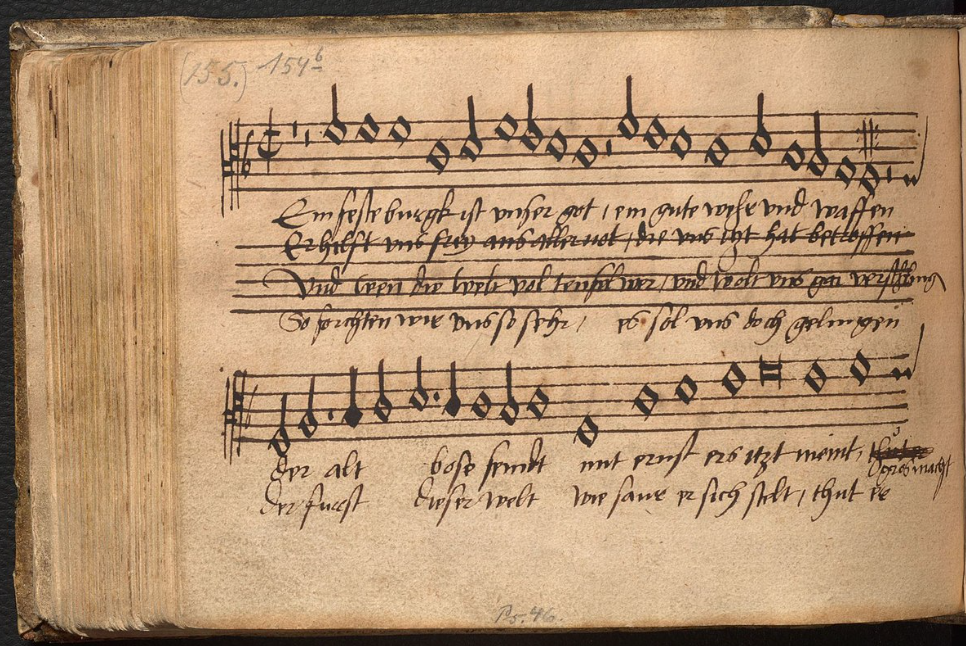 (155.) 154b
Ein feste burgk ist unser got, ein gute wehr und waffen
Er hilfft uns frey aus aller not, die uns itzt hat betroffen
Und wen die welt vol teufel wer, und wolt uns gar
So forchten wir uns so sehr, es sol uns doch gelingen
der alt bose feindt mit ernst ers itzt meint,
gros macht
der furst dieser welt wie saur er sich stelt, thut er
Ps. 46.